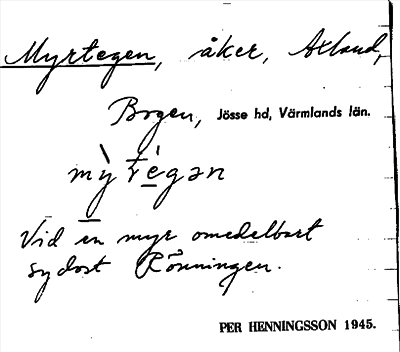 Myrtegen, åker, Axland,
Bogen, Jösse hd, Värmlands län.
mỳt́e̲gən
Vid en myr omedelbart
sydost Rönningen.
PER HENNINGSSON 1945.